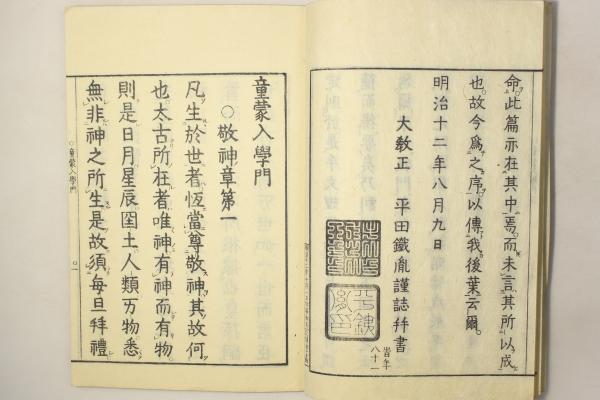 命此篇亦在其中焉而未言其所以成
也故今爲之序以傳我後葉云爾
明治十二年八月九日
大教正 平田鐵胤謹誌幷書
當年
八十一
童蒙入學門
○敬神章第一
凡生於世者恆當尊敬神其故何
也太古所在者唯神有神而有物
則是日月星辰国土人類万物悉
無非神之所生是故須每旦拜禮
○童蒙入學門
○一